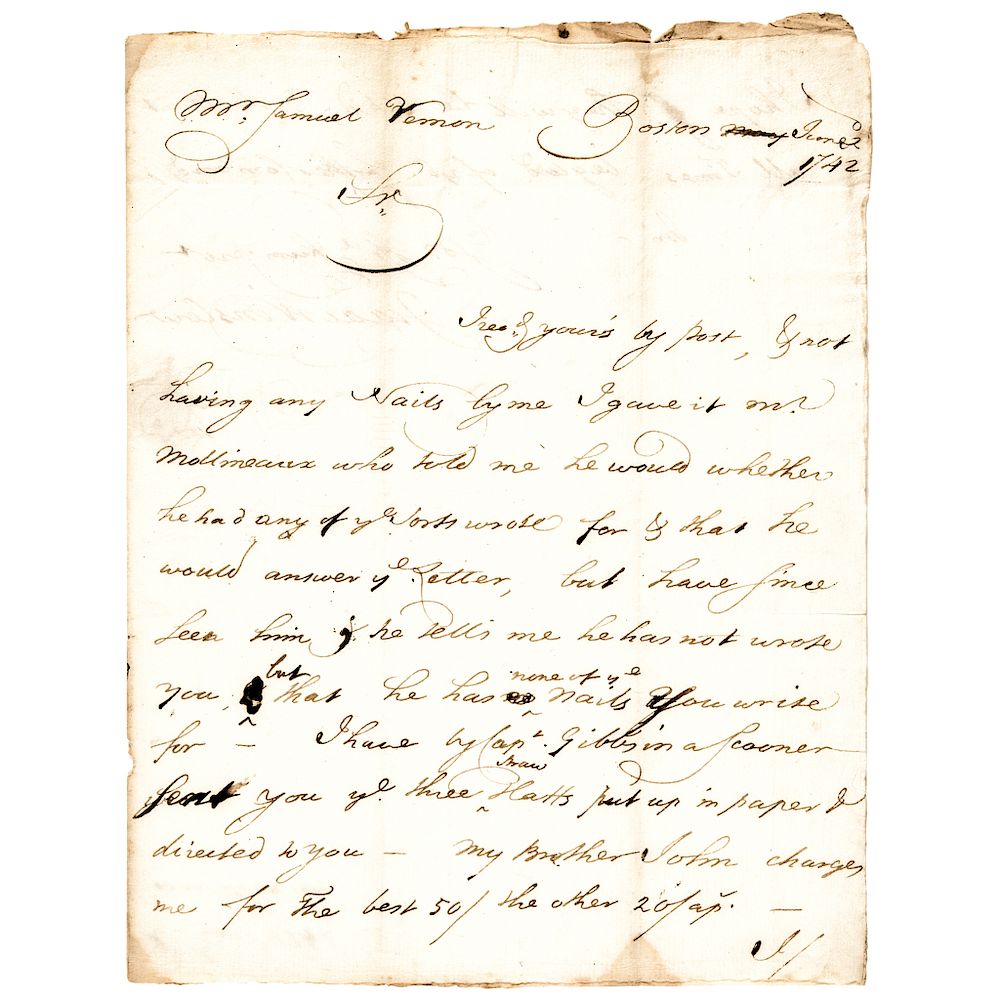 Mr. Samuel Vernon Boston may June
1742
Sr.
I recd. yours by post, & not
having any Nails by me I gave it Mr.
Mollineaux who told me he would whether
he had any of ye. Sorts wrote for & that he
would answer ye. Letter, but have since
seen him, & he tells me he has not wrote
you, but that he has none of ye Nails You write
for – I have by Capt. Gibbs in a Scooner
sent you ye. three Straw Hatts put up in paper &
directed to you – My Brother John charges
me for The best 50/ the other 20/ap. –
I/